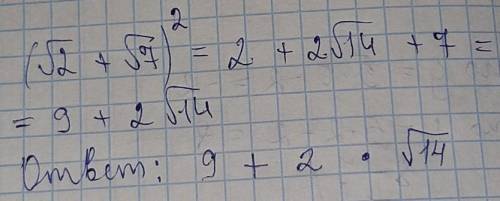 (√2 + √7)² = 2 + 2√14 + 7 =
= 9 + 2√14
Ответ: 9 + 2 · √14